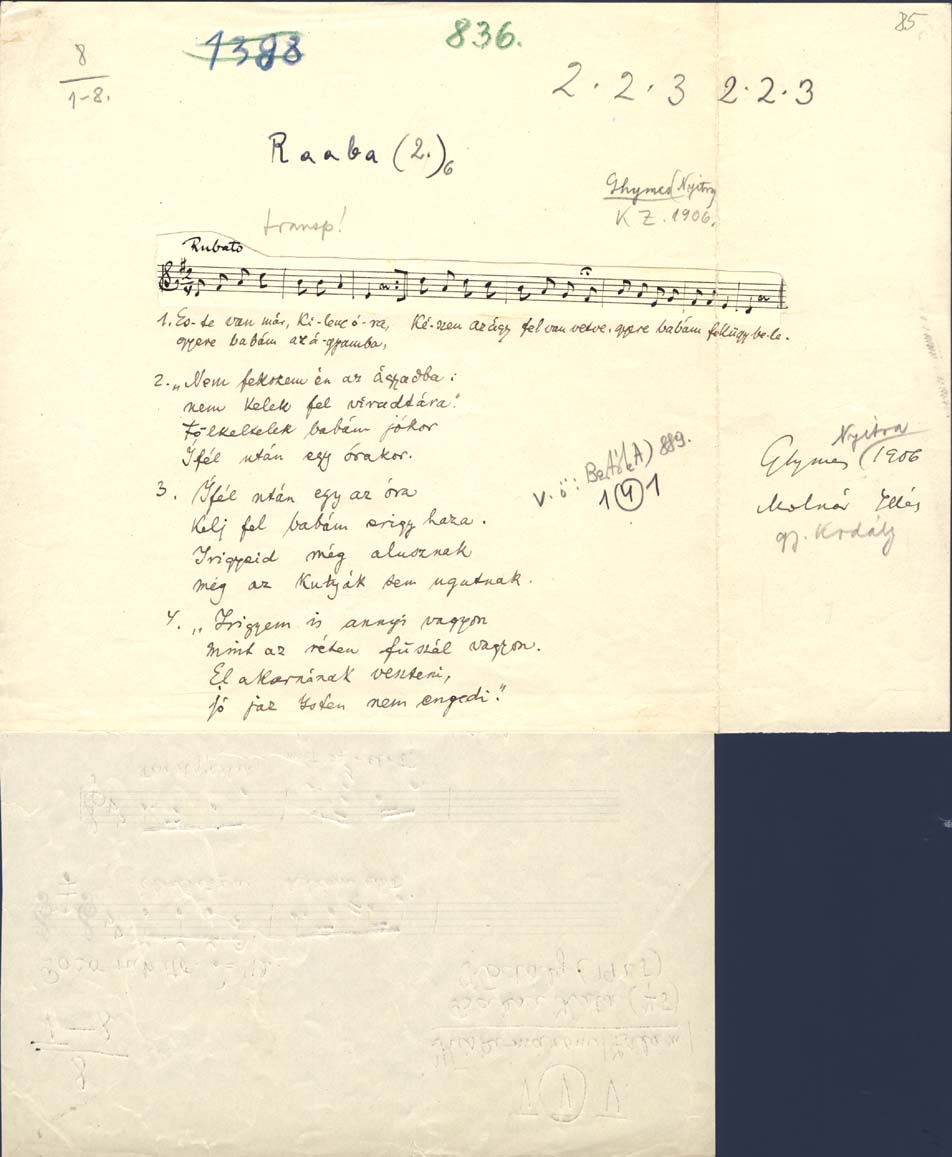 85
8
1-8.
1388
836.
2·2·3 2·2·3
Raaba (2.)6
Ghymes (Nyitra
K Z. 1906.
transp!
Rubato
1. Es-te van már, Ki-lenc ó-ra, Ké-szen az ágy fel van vetve, gyere babám feküggy be-le.
gyere babám az á-gyamba,
2. „Nem fekszem én az ágyadba:
nem kelek fel viradtára."
Fölkeltelek babám jókor
Ífél után egy órakor.
3. Ífél után egy az óra
Kelj fel babám erigy haza.
Irigyeid még alusznak
még az kutyák sem ugatnak.
v.ö: Bartók A) 889.
1 4 1
Nyitra
Ghymes (1906
Molnár Illés
gy. Kodály
4. „Irigyem is annyi vagyon
mint az réten fűszál vagyon.
El akarnának veszteni,
jó jaz Isten nem engedi."